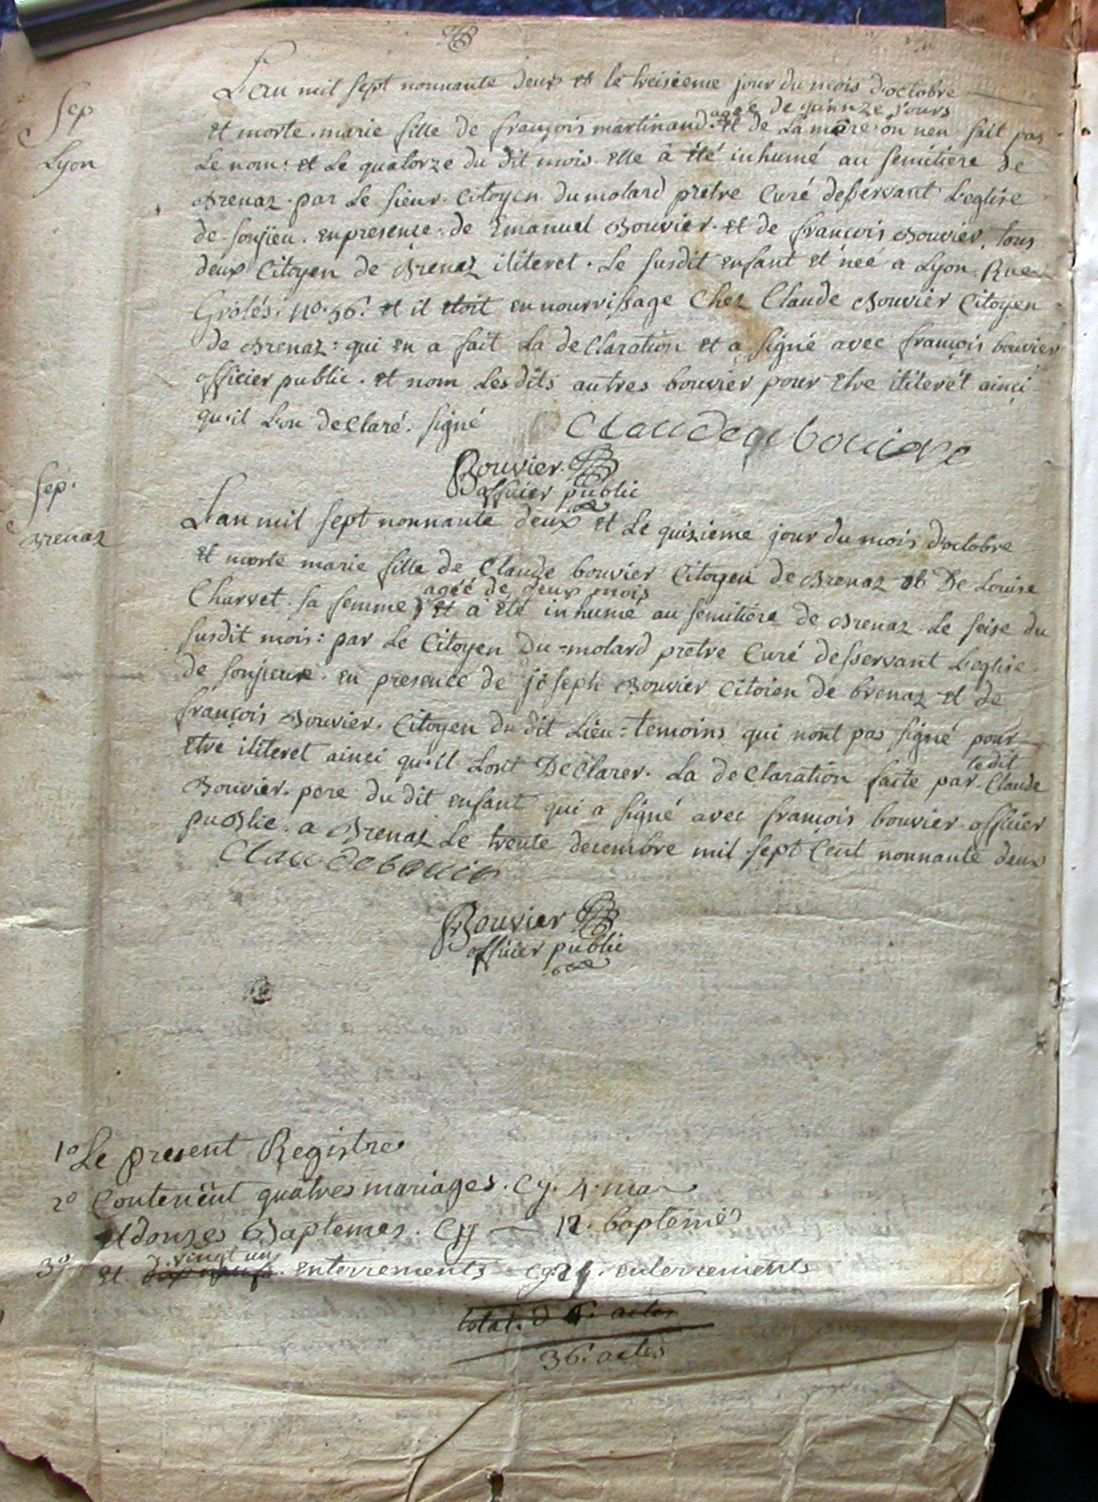 Sep
Lyon
L'an mil sept nonnante deux et le treisieme jour du mois d'octobre
agée de quinze jours
et morte. marie fille de françois martinand. et de La mere on nen sait pas
Le nom: et Le quatorze du dit mois elle à été inhumé au semitiere de
Brenaz. par Le sieur Citoyen dumolard prêtre Curé deservant L'eglise
de Sonjieu. en presence de Emanuel Bouvier. et de françois Bouvier, tous
deux Citoyen de Brenaz iliteret. Le susdit enfant et neé a Lyon Rue
Grolés. no. 56. et il etoit en nourrissage Chez Claude Bouvier Citoyen
de Brenaz: qui en a fait La declaration et a signé avec françois bouvier
officier public. et nom Les dits autres bouvier pour etre iliterét ainci
qu'il L'on declaré. signé
Claude bouvier
Bouvier
officier public
Sep.
Brenaz
L'an mil sept nonnante deux et Le quisieme jour du mois d'octobre
et morte marie fille de Claude bouvier Citoyen de Brenaz et De Louise
agéé de deux mois
Charvet. sa femme et à été inhumé au semitiére de Brenaz Le seise du
susdit mois: par Le Citoyen Du-molard prêtre Curé desservant L'eglise
de sonjeux. en presence de joseph Bouvier Citoien de brenaz et de
françois Bouvier. Citoyen du dit Lieu: temoins qui n'ont pas signé pour
etre iliteret ainci qu'il Lont Declarer. La declaration faite par ledit Claude
Bouvier. pere du dit enfant qui a signé avec françois bouvier officier
public. a Brenaz Le trente decembre mil sept Cent nonnante deux
Claude bouvier
Bouvier
officier public
1o Le present Registre
2o Contenent quatres mariages. Cy. 4. mar
et douzes Baptemes. Cy 12. baptemes
vingt un
3o et enterrements cy. 21. enterrements
total. d actes
36. actes